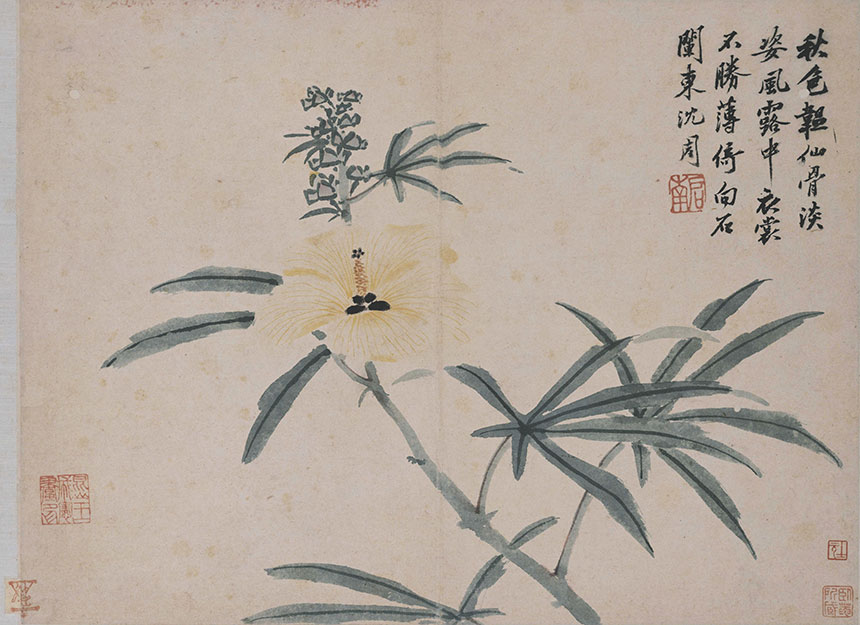 秋色韞仙骨淡
姿風露中衣裳
不勝薄倚向石
闌東沈周
啓南